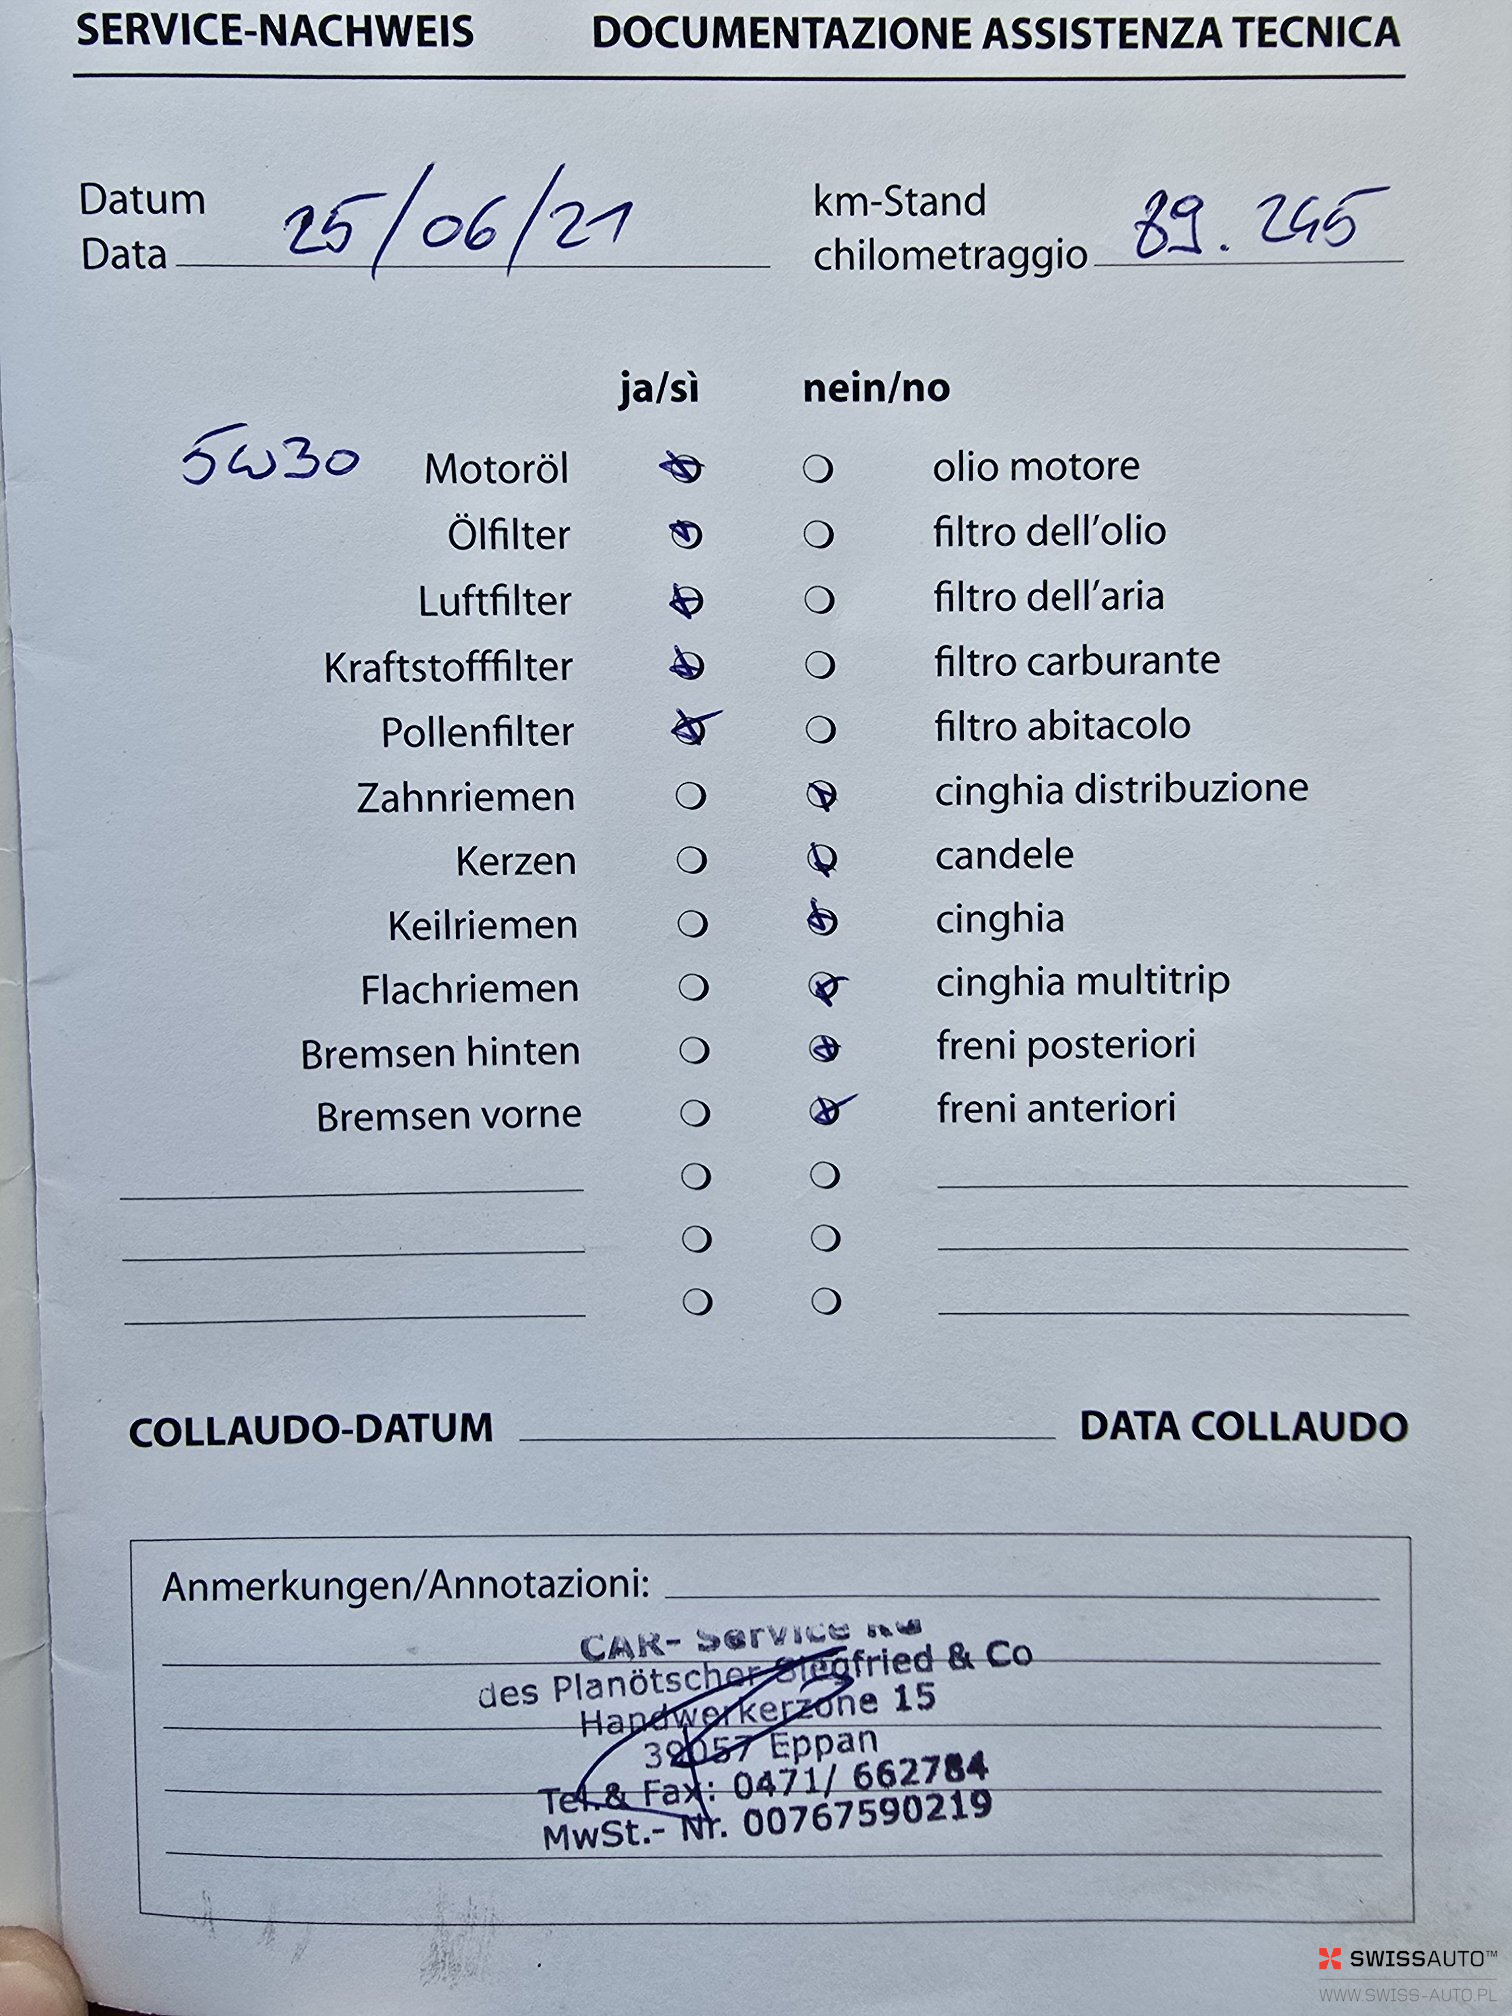 SERVICE-NACHWEIS DOCUMENTAZIONE ASSISTENZA TECNICA
Datum km-Stand
Data 25/06/21 chilometraggio 89.245
ja/sì nein/no
5W30 Motoröl olio motore
Ölfilter filtro dell'olio
Luftfilter filtro dell'aria
Kraftstofffilter filtro carburante
Pollenfilter filtro abitacolo
Zahnriemen cinghia distribuzione
Kerzen candele
Keilriemen cinghia
Flachriemen cinghia multitrip
Bremsen hinten freni posteriori
Bremsen vorne freni anteriori
COLLAUDO-DATUM DATA COLLAUDO
Anmerkungen/Annotazioni:
CAR- Service KG
des Planötscher Siegfried & Co
Handwerkerzone 15
39057 Eppan
Tel.& Fax: 0471/ 662784
MwSt.- Nr. 00767590219
SWISSAUTO™
WWW.SWISS-AUTO.PL